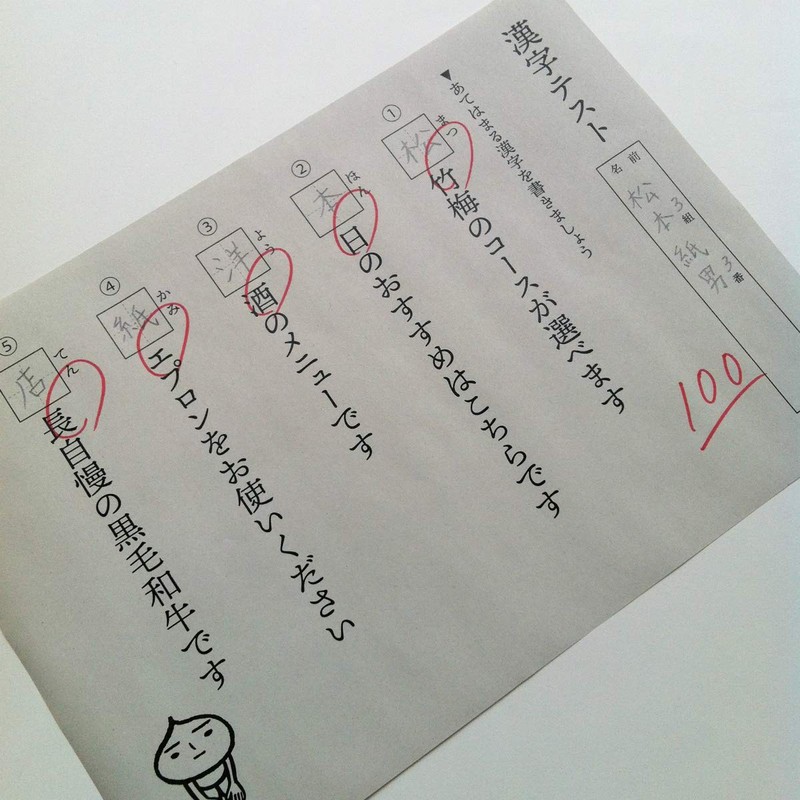 漢字テスト
名前
松本3組
紙男3番
100
▼あてはまる漢字を書きましょう
①
まつ
松竹梅のコースが選べます
②
ほん
本日のおすすめはこちらです
③
よう
洋酒のメニューです
④
かみ
紙エプロンをお使いください
⑤
てん
店長自慢の黒毛和牛です